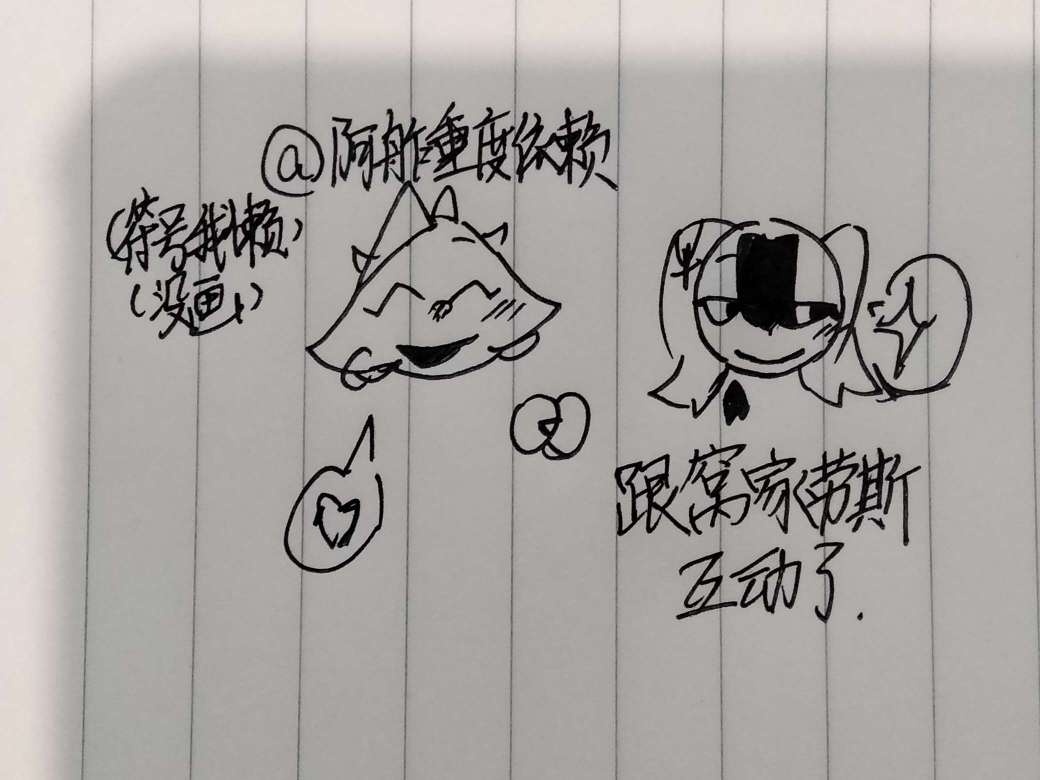 @阿舴重度依赖
(符号我懒)
(没画)
跟窝家劳斯
互动了.